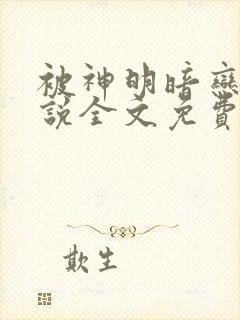 被神明暗戀
說全文免費
欺生